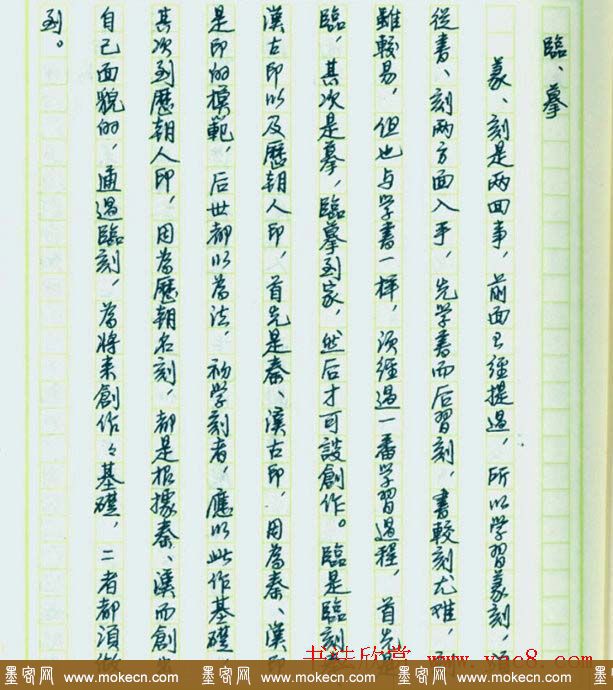 臨、摹
篆、刻是两回事，前面已經提過，所以学習篆刻，須
從書、刻两方面入手，先学書而后習刻，書較刻尤难，
雖較易，但也与学書一样，须經過一番学習過程，首先是
臨，其次是摹，臨摹到家，然后才可談創作。臨是臨刻秦
漢古印以及歷朝人印，首先是秦、漢古印，因為秦、漢印
是印的模範，后世都以為法，初学刻者，應以此作基礎，
其次到歷朝人印，因為歷朝名刻，都是根據秦、漢而創出
自己面貌的，通過臨刻，為將来創作々基礎，二者都須做
到。
书法欣赏 www.yac8.com
墨客网 www.mokecn.com 墨客网 www.mokecn.com 墨客网 www.mokecn.com 墨客网 www.mokecn.com